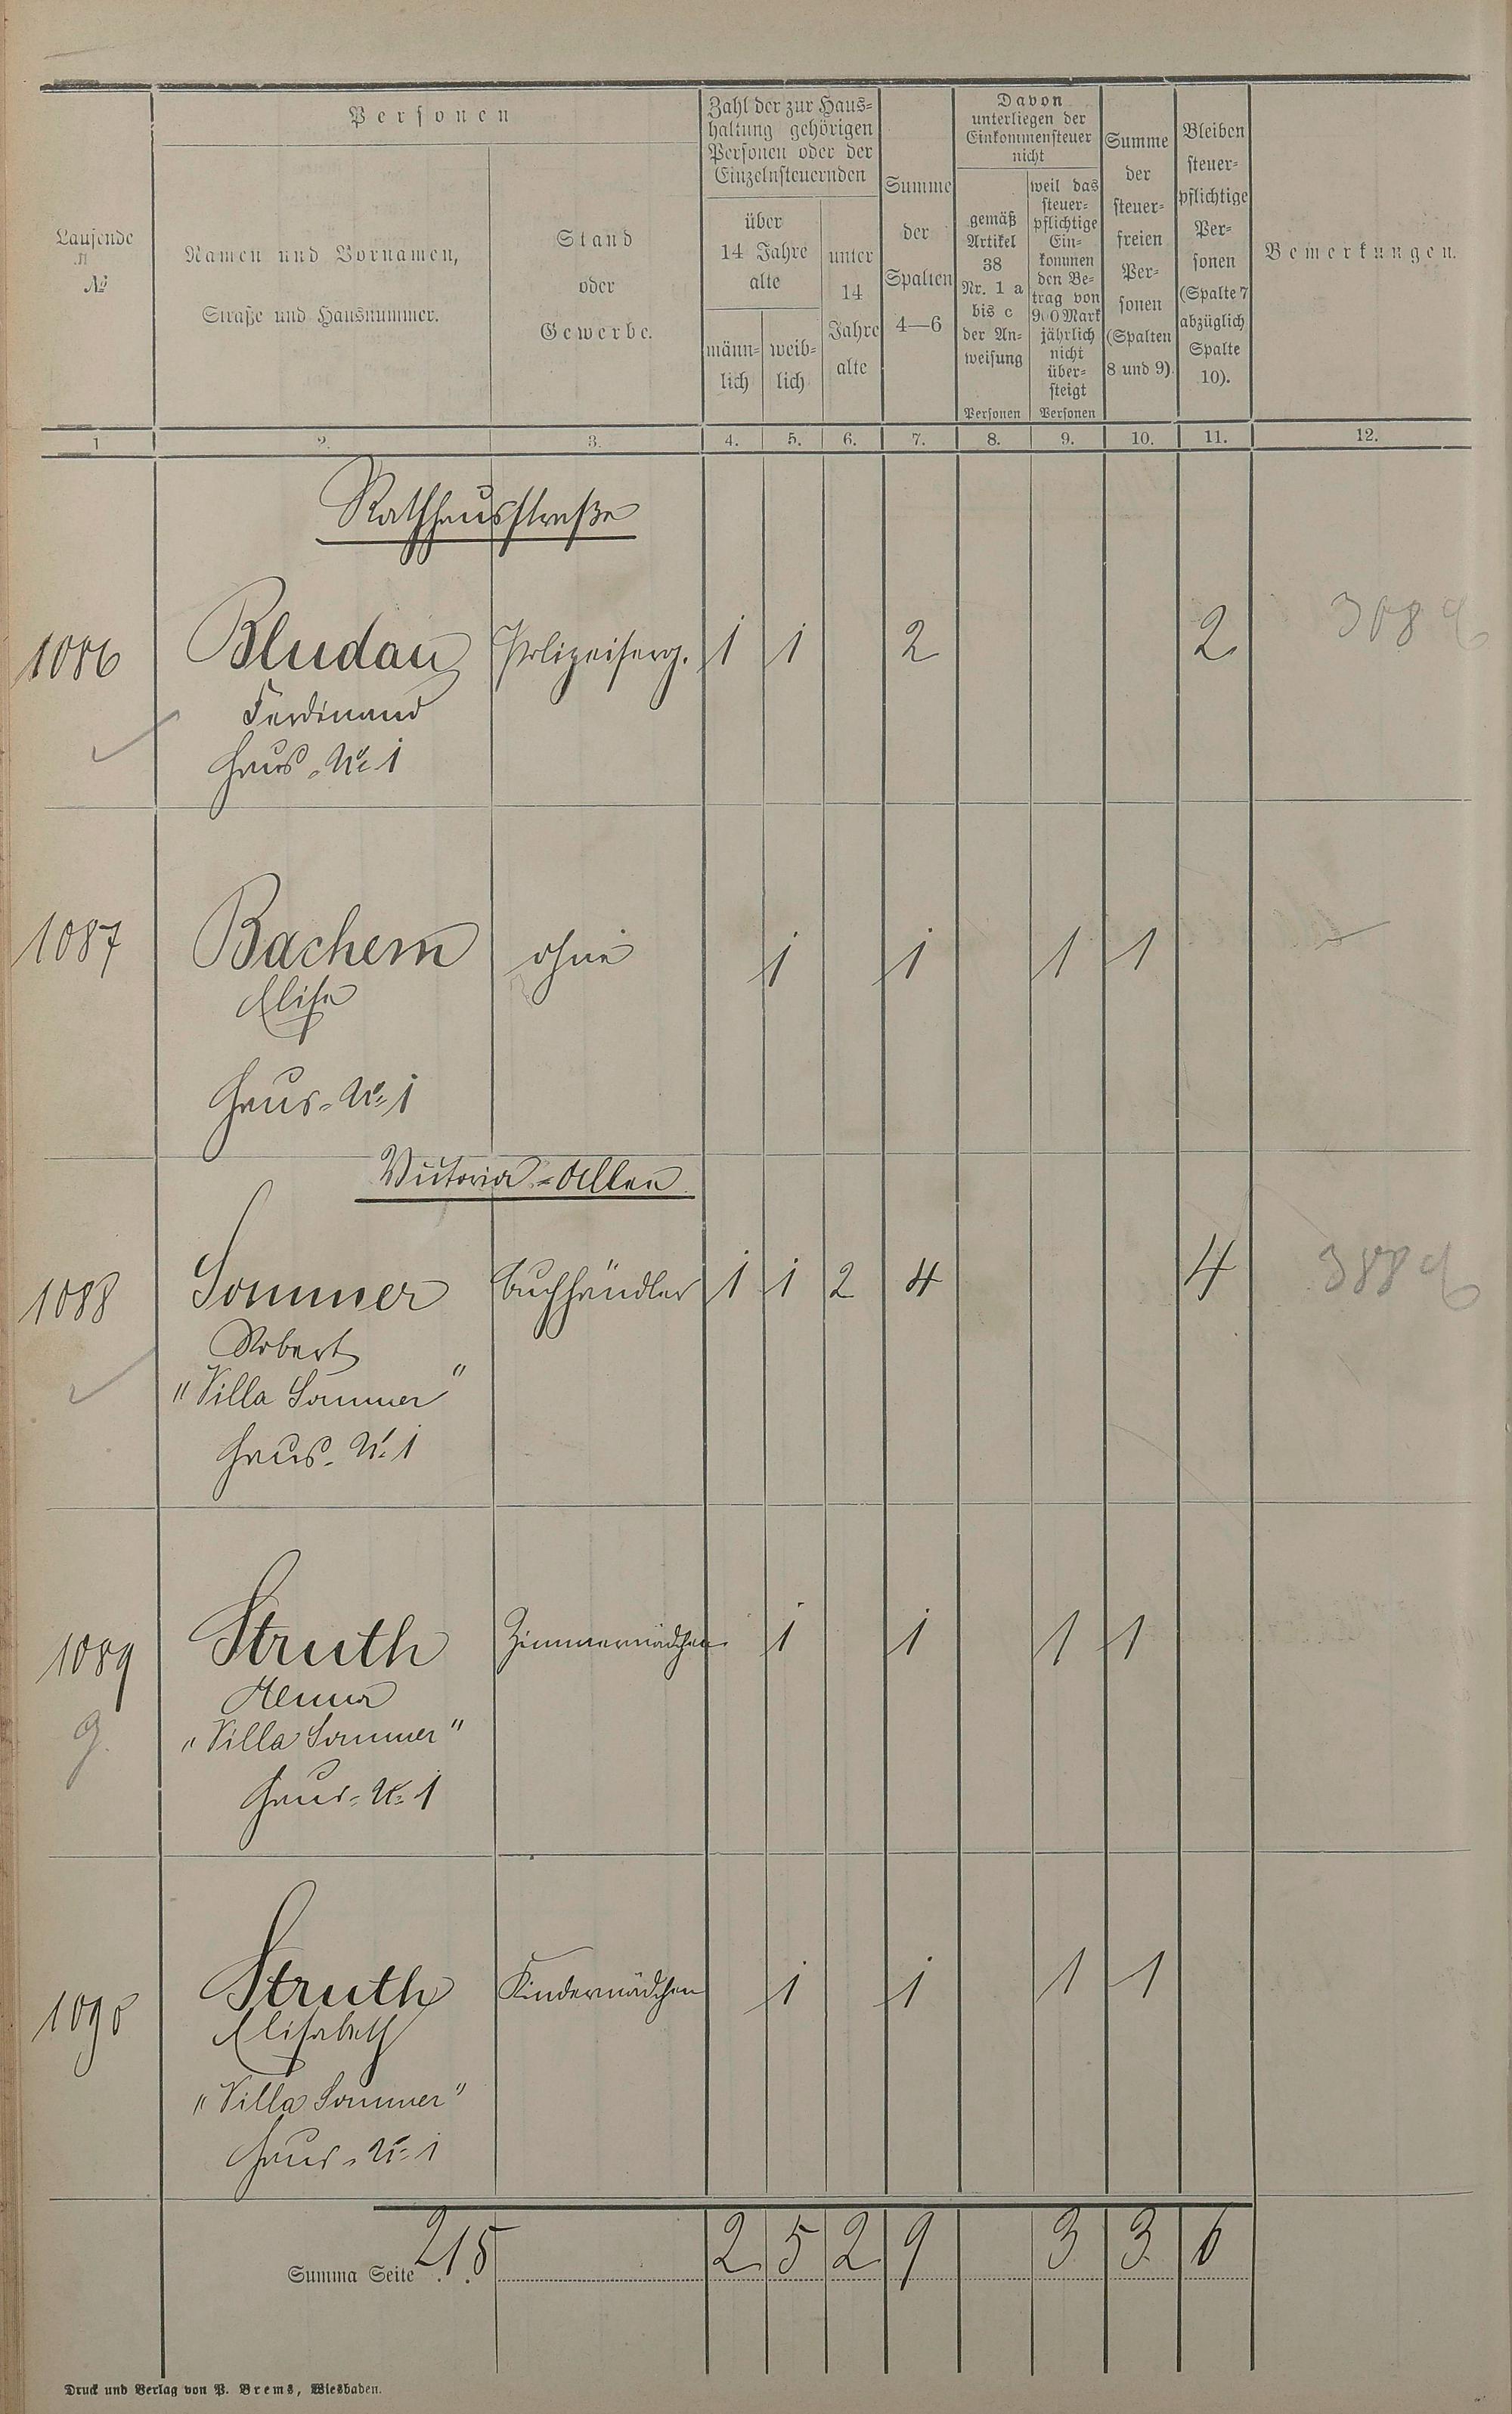 Laufende
№
Personen
Namen und Vornamen,
Straße und Hausnummer.
Stand
oder
Gewerbe.
Zahl der zur Haus-
haltung gehörigen
Personen oder der
Einzelnsteuernden
über
14 Jahre
alte
männ-
lich
weib-
lich
unter
14
Jahre
alte
Summe
der
Spalten
4—6
Davon
unterliegen der
Einkommensteuer
nicht
gemäß
Artikel
38
Nr. 1 a
bis c
der An-
weisung
Personen
weil das
steuer-
pflichtige
Ein-
kommen
den Be-
trag von
900 Mark
jährlich
nicht
über-
steigt
Personen
Summe
der
steuer-
freien
Per-
sonen
(Spalten
8 und 9).
Bleiben
steuer-
pflichtige
Per-
sonen
(Spalte 7
abzüglich
Spalte
10).
Bemerkungen.
1 2. 3. 4. 5. 6. 7. 8. 9. 10. 11. 12.
Rathhausstraße
1086 Bludau Polizeiserg. 1 1 2 2
Ferdinand
Haus-No 1
1087 Bachem ohne 1 1 1 1
Elise
Haus-No 1
Victoria-Allee
1088 Sommer Buchhändler 1 1 2 4 4 388
Robert
"Villa Sommer"
Haus-No 1
1089 Struth Zimmermädchen 1 1 1 1
"Villa Sommer"
Haus-No 1
1090 Struth Kindermädchen 1 1 1 1
Elisabeth
"Villa Sommer"
Haus-No 1
Summa Seite 215 2 5 2 9 3 3 6
Druck und Verlag von P. Brems, Wiesbaden.